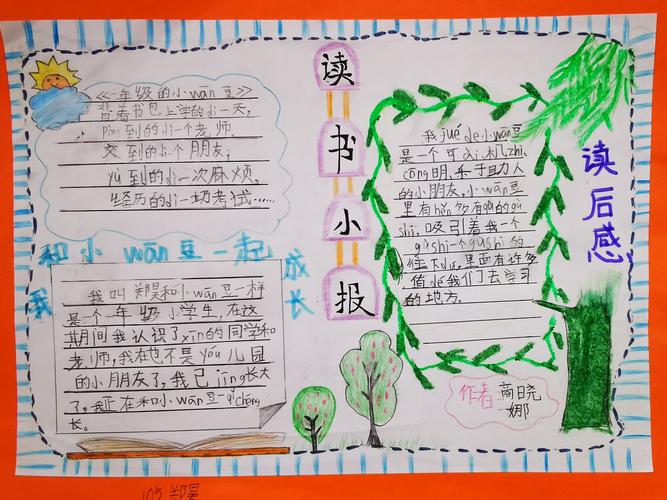 读书小报
《一年级的小wān豆》
背着书包上学的dì一天,
pèng到的dì一个老师,
交到的dì个朋友,
yù到的dì一次麻烦,
经历的dì一场考试……
我和小wān豆一起成长
我叫郑昊和小wān豆一样
是一个一年级小学生,在这
期间我认识了xīn的同学和
老师,我在也不是yòu儿园
的小朋友了,我已jīng长大
了,我正在和小wān豆一qǐ chéng
长。
读后感
我jué de小wān豆
是一个可ài、机zhì、
cōng明、乐于助人
的小朋友,小wān豆
里有hěn多有qù的gù
shì,吸引着我一个
gùshi一个gùshi的
往下dú,里面有许多
值dé我们去学习
的地方。
作者 商晓
娜
105 郑昊